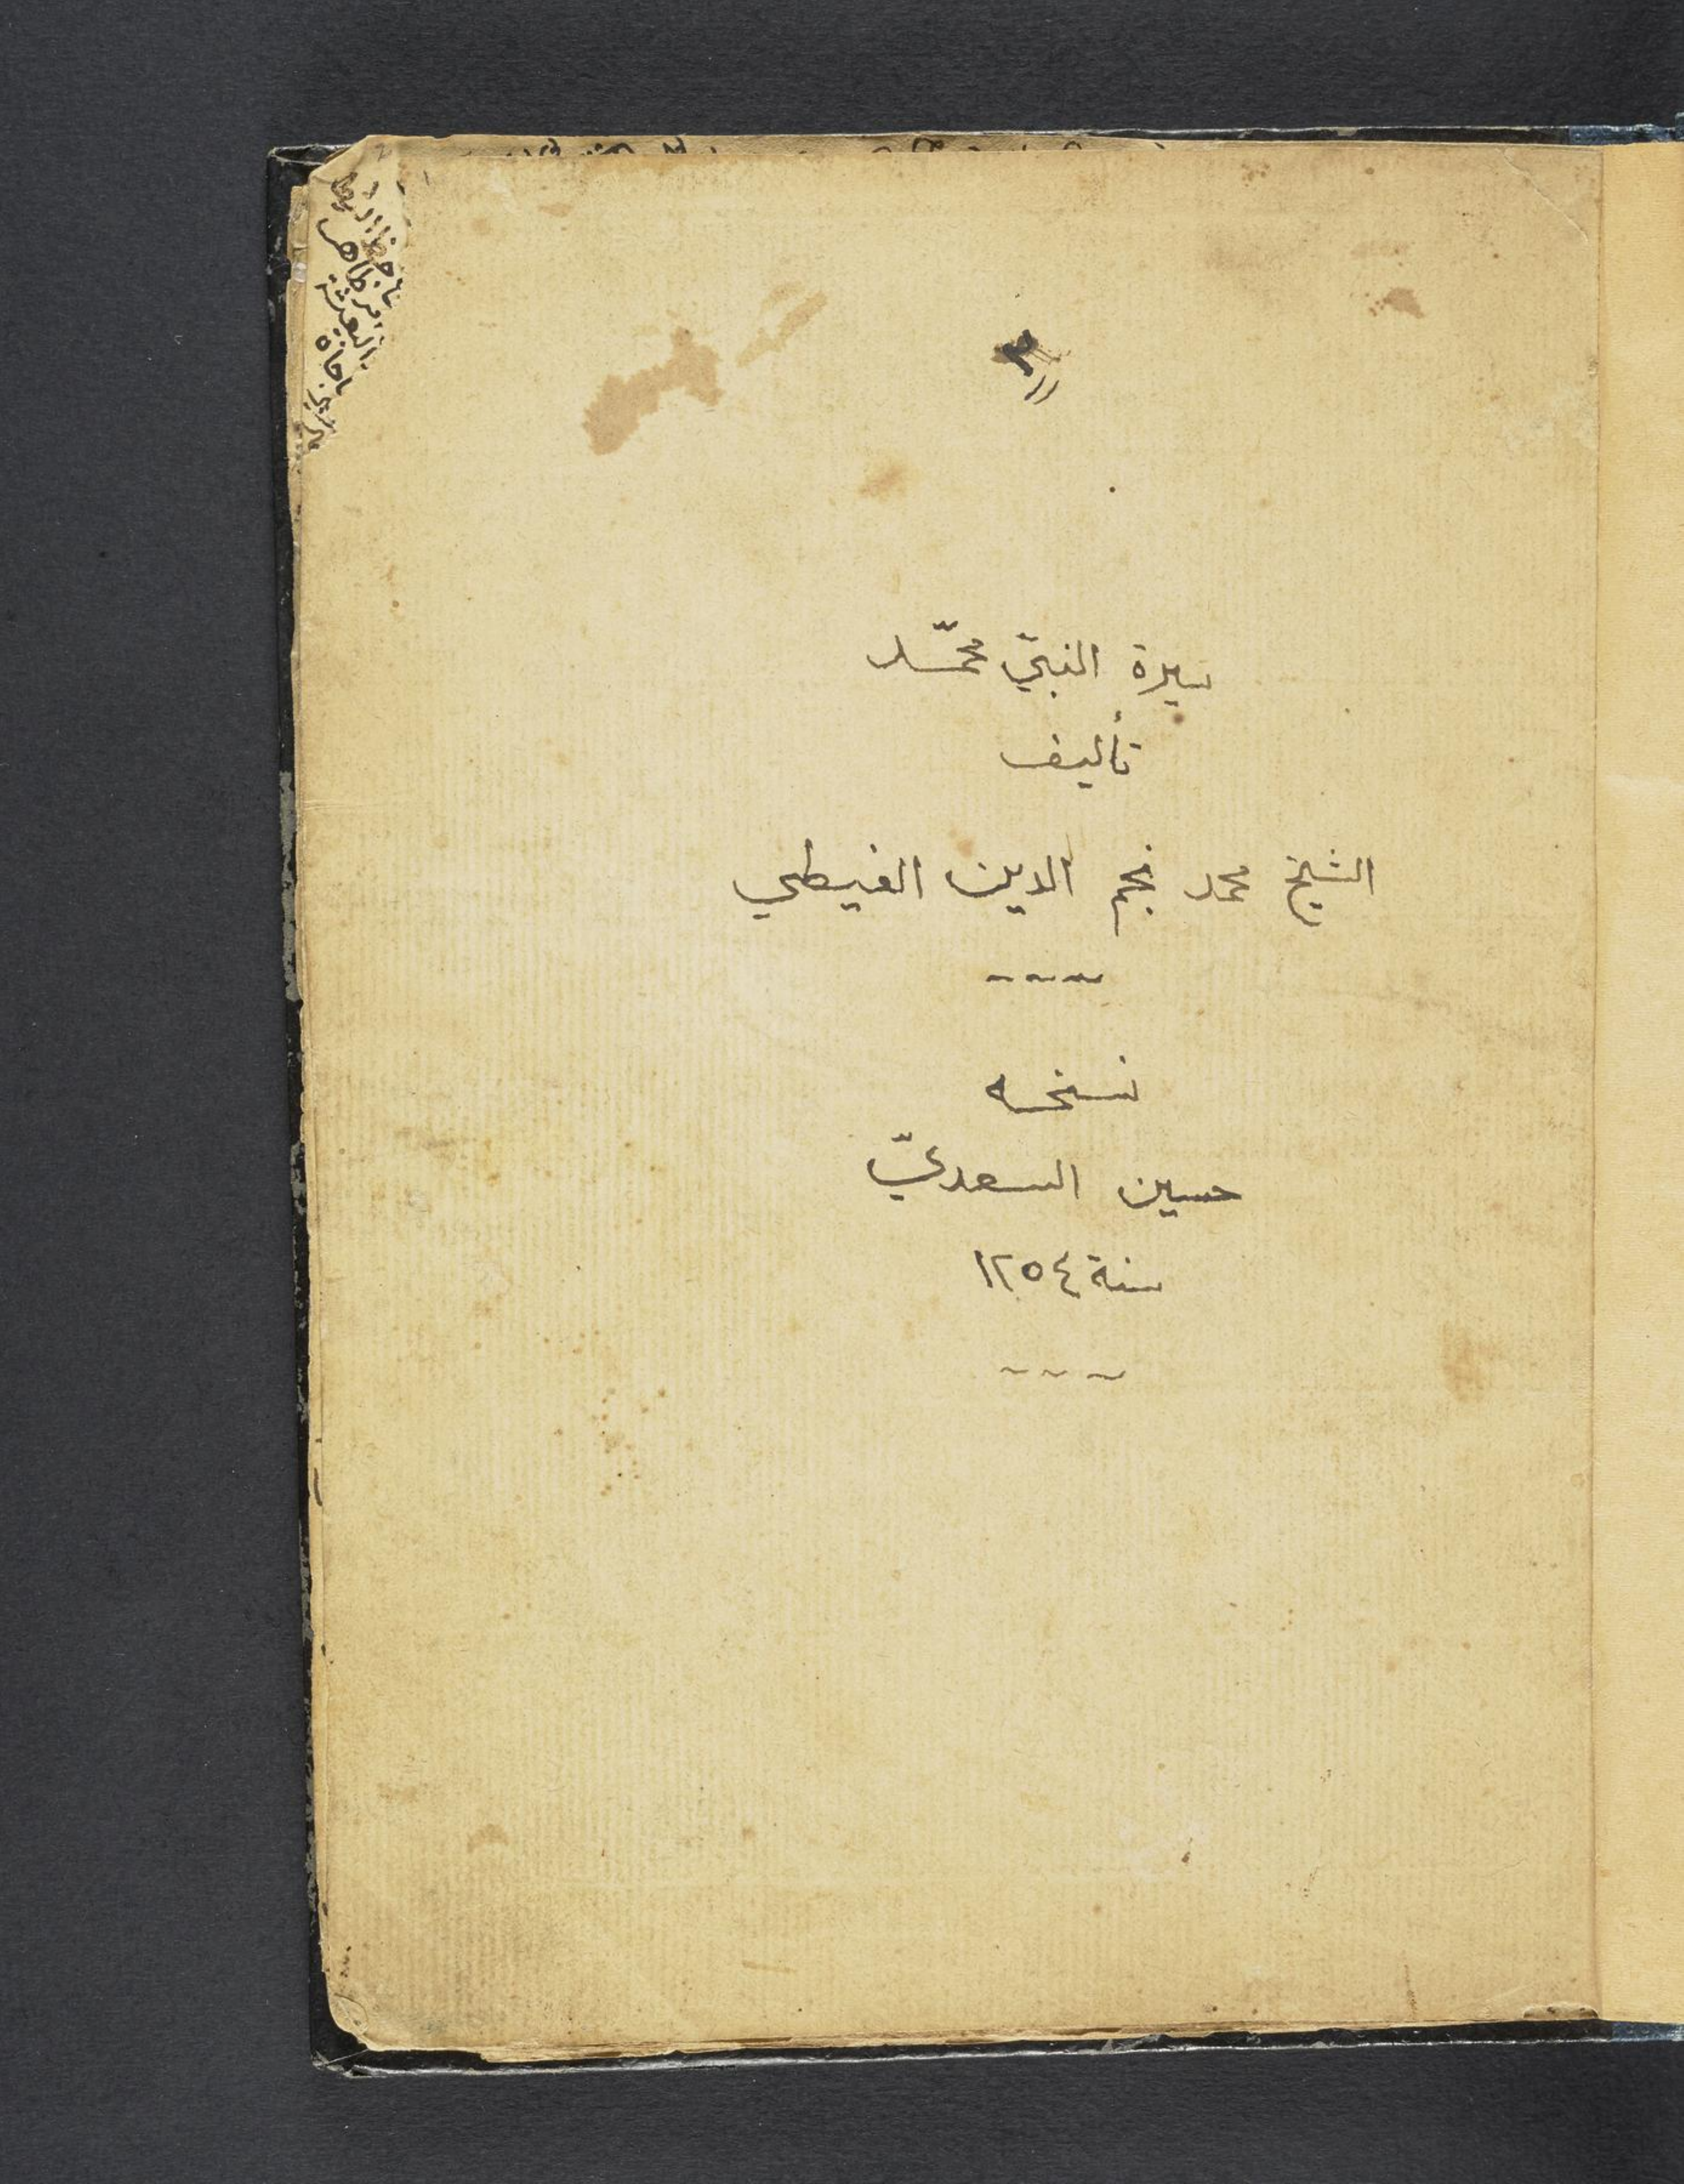 سيرة النبيّ محمّد
تأليف
الشيخ محمد نجم الدين الغيطي
نسخه
حسين السعديّ
سنة ١٢٥٤